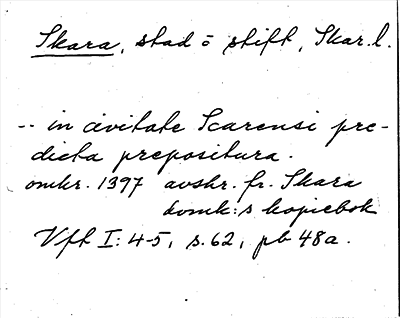 Skara, stad o stift, Skar. l.
-- in civitate Scarensi pre-
dicta prepositura.
omkr. 1397 avskr. fr. Skara
domk:s kopiebok
Vft I: 4-5, s. 62, pb 48a.